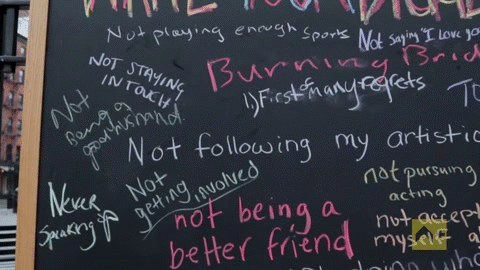 Not playing enough sports
Not saying "I love you
NOT STAYING
IN TOUCH
Burning Brid
1) First of Many regrets
Not
Being a
good husband.
Not following my artistic
Not
getting involved
not pursuing
acting
Never
Speaking up
not being a
better friend
not accept
myself